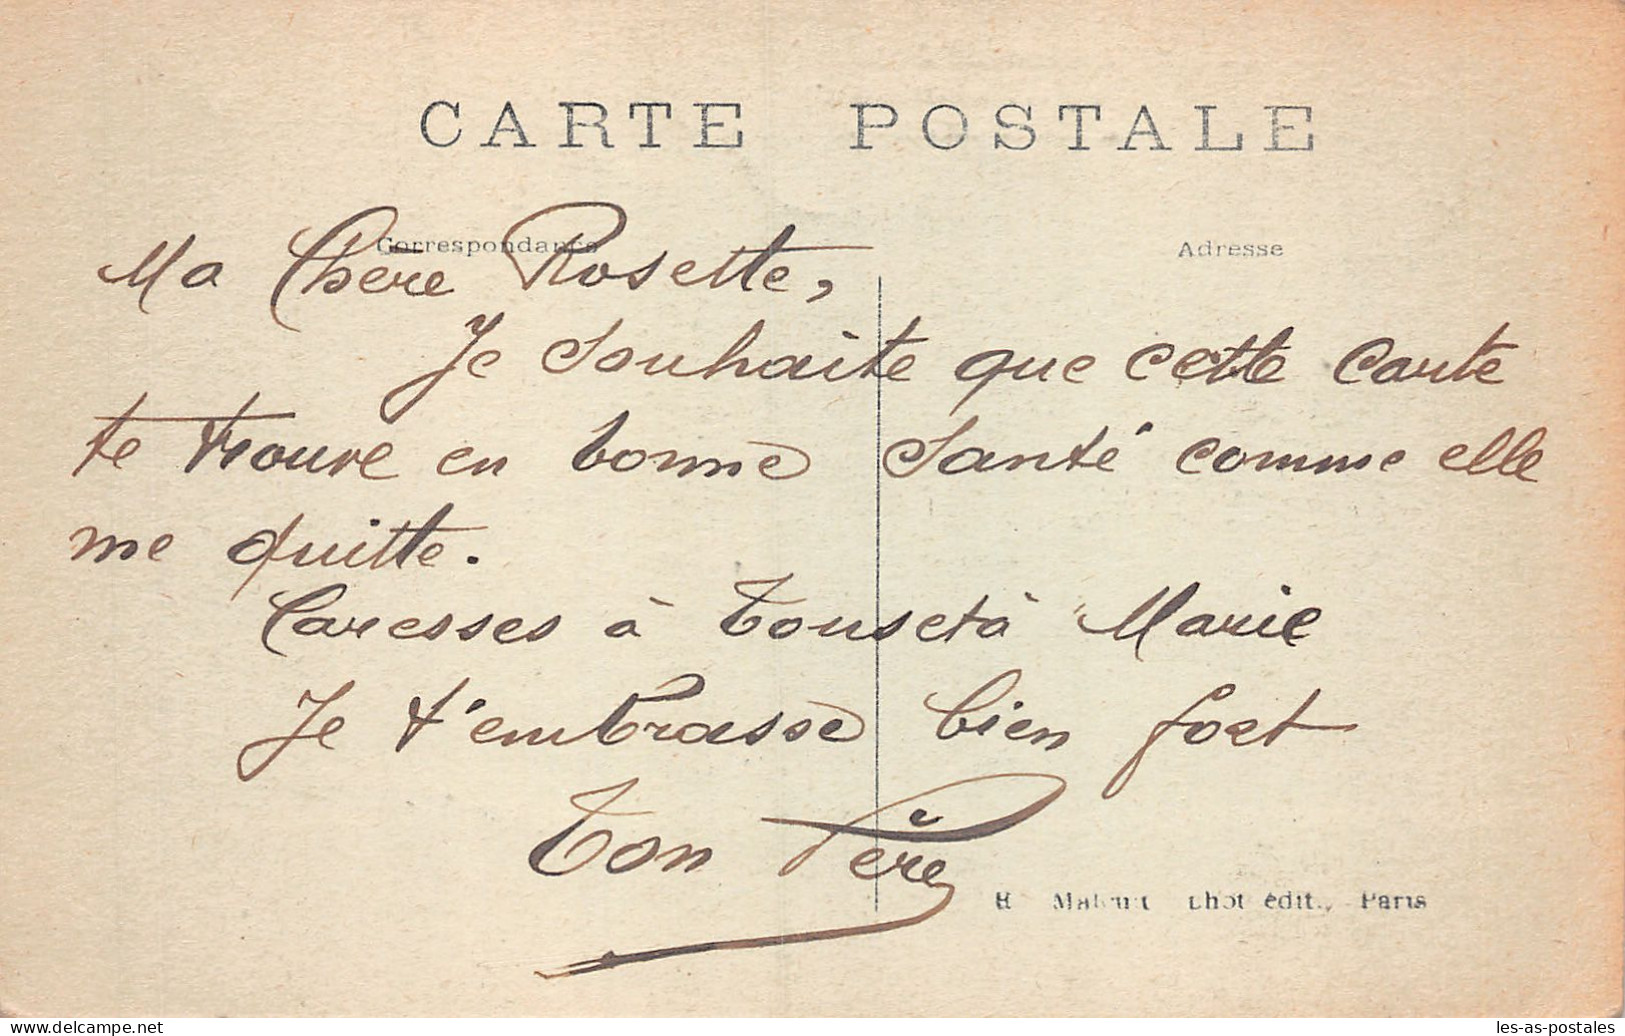 CARTE POSTALE
Correspondance
Adresse
Ma Chère Rosette,
Je souhaite que cette carte
te trouve en bonne santé comme elle
me quitte.
Caresses à Touset à Marie
Je t'embrasse bien fort
Ton Père
phot édit., Paris
www.delcampe.net
les-as-postales